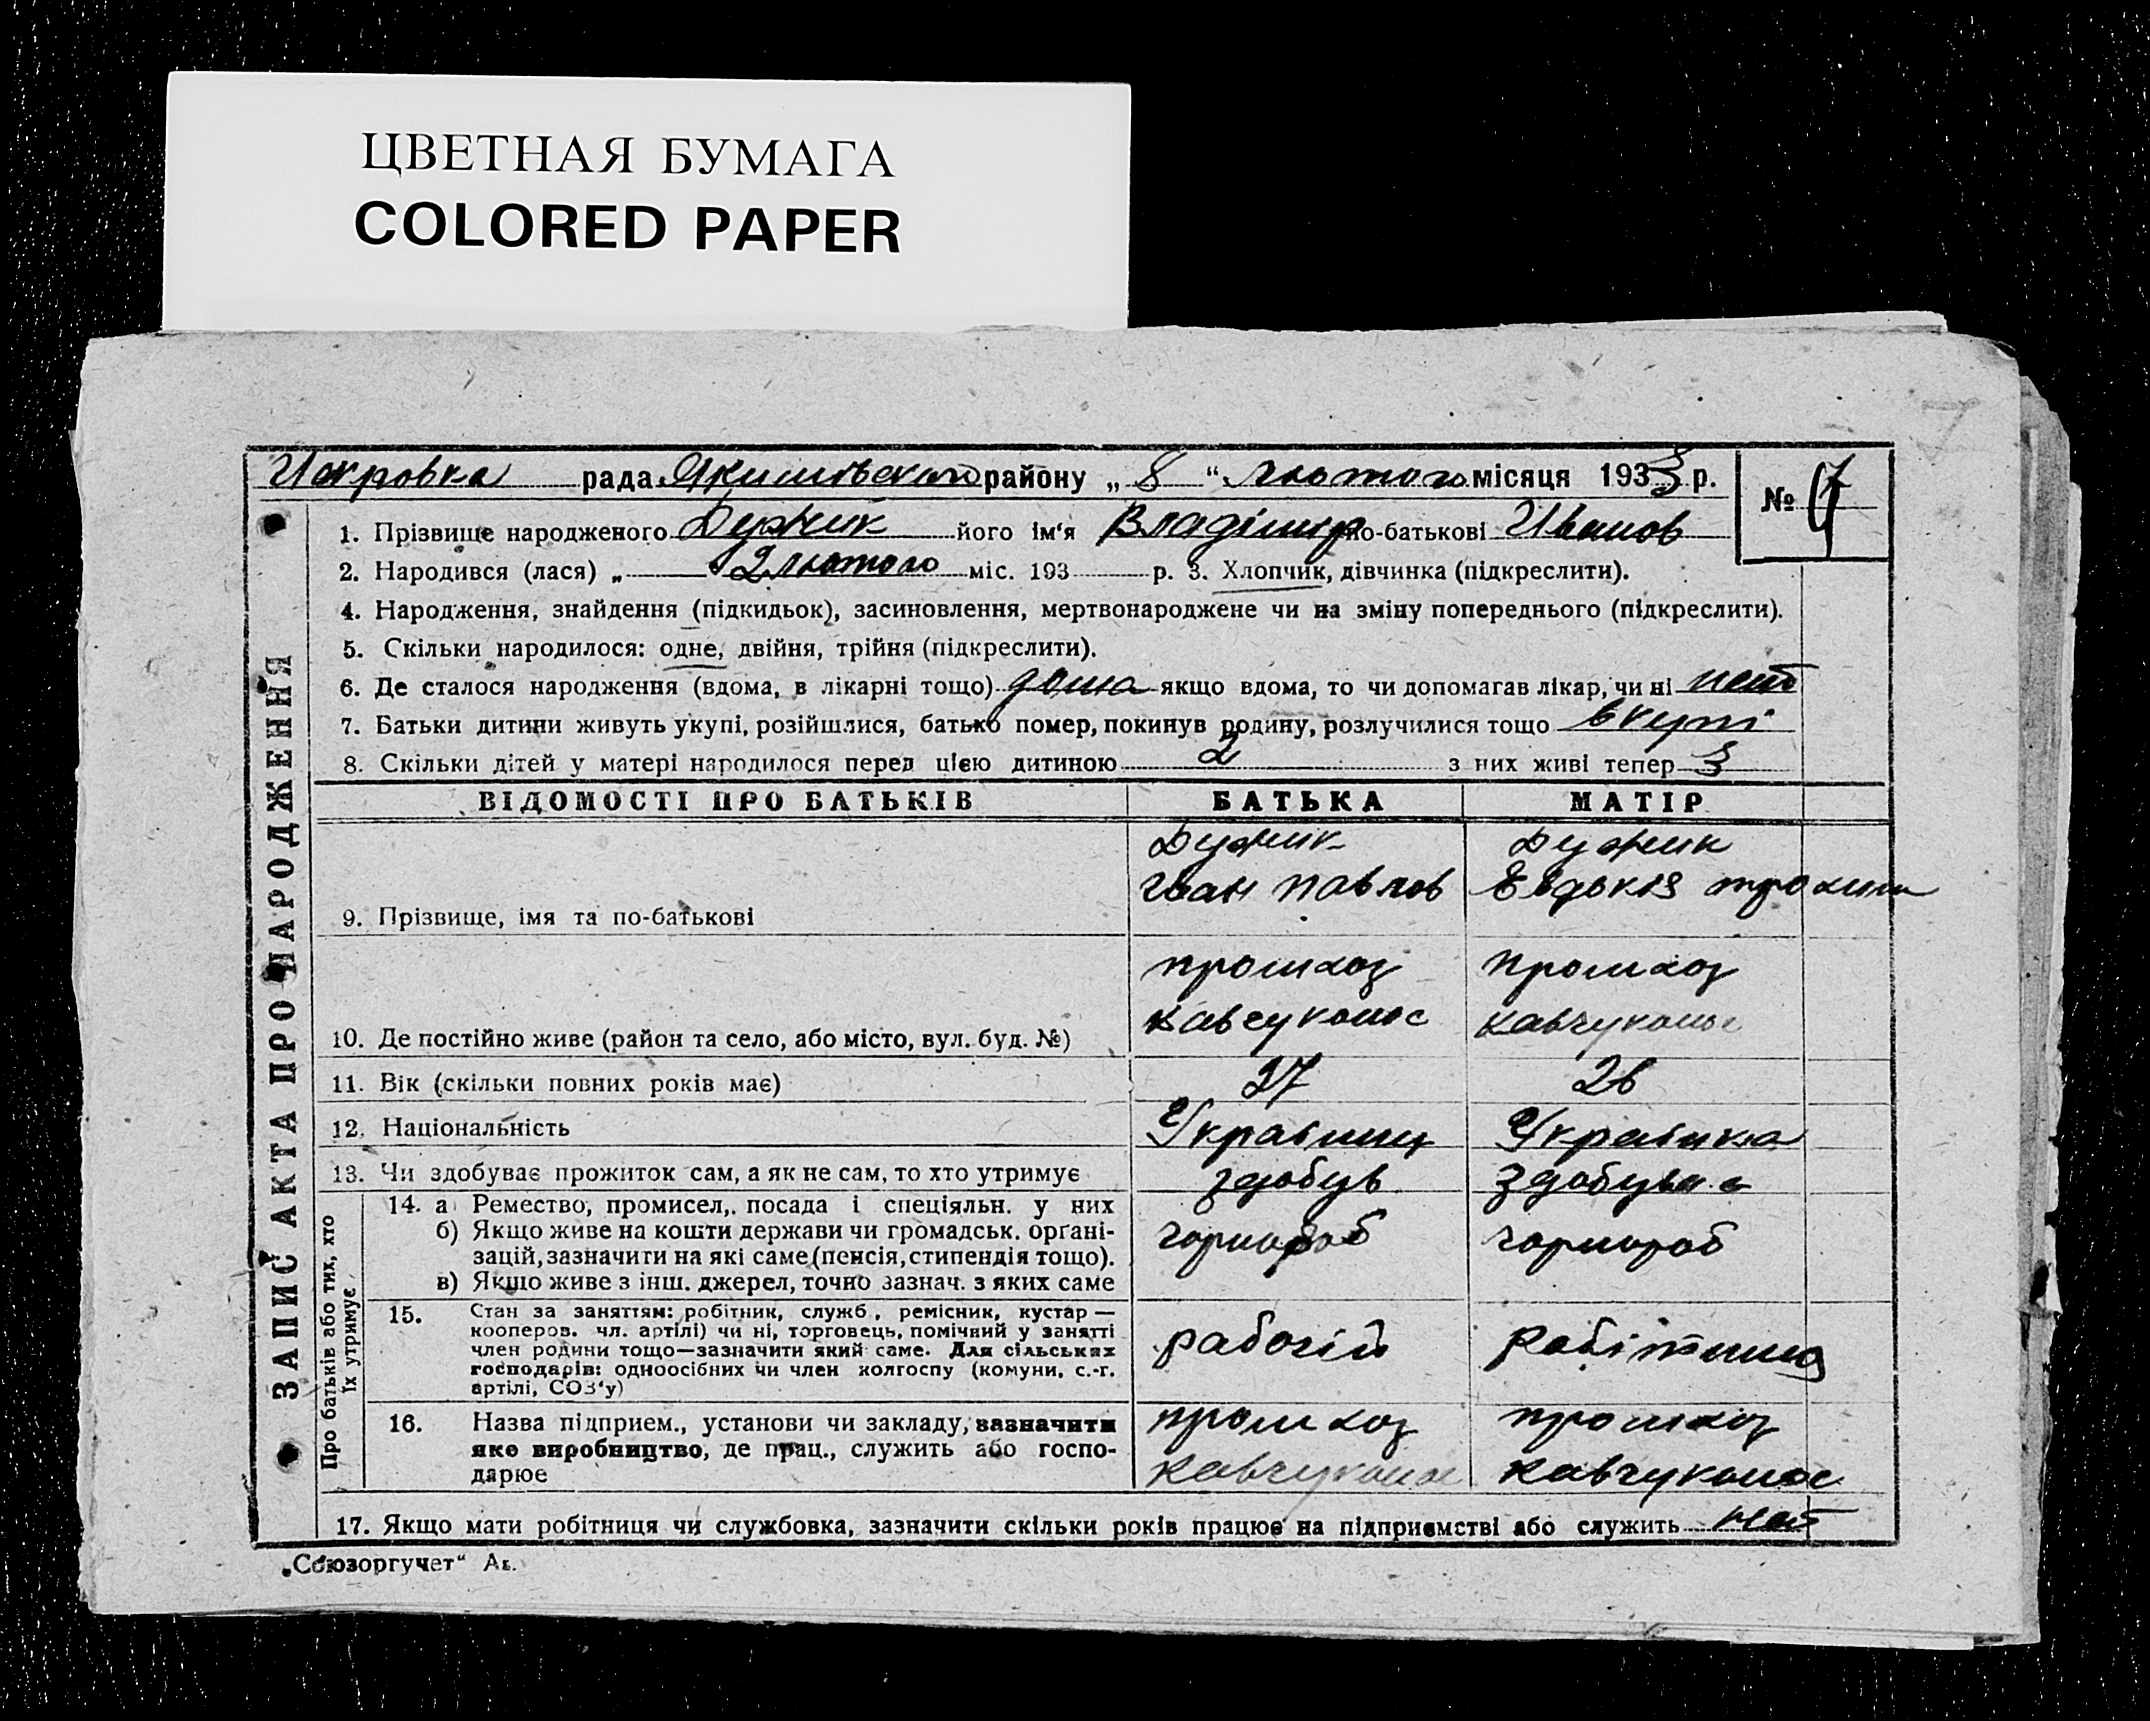 ЦВЕТНАЯ БУМАГА
COLORED PAPER
рада Якимовского району „ 8 “ лютого місяця 1933 р.
№
1. Прізвище народженого Дужик його ім'я Владімир по-батькові Иванов
2. Народився (лася) „ 2 лютого міс. 193 р. 3. Хлопчик, дівчинка (підкреслити).
4. Народження, знайдення (підкидьок), засиновлення, мертвонароджене чи на зміну попереднього (підкреслити).
5. Скільки народилося: одне, двійня, трійня (підкреслити).
6. Де сталося народження (вдома, в лікарні тощо) дома якщо вдома, то чи допомагав лікар, чи ні нет
7. Батьки дитини живуть укупі, розійшлися, батько помер, покинув родину, розлучилися тощо вкупі
8. Скільки дітей у матері народилося перед цією дитиною 2 з них живі тепер 3
ЗАПИС АКТА ПРО НАРОДЖЕННЯ
ВІДОМОСТІ ПРО БАТЬКІВ БАТЬКА МАТІР
Дужик Дужик
Іван Павлов Евдокія
9. Прізвище, імя та по-батькові
промхоз промхоз
Кавчуконос Кавчуконос
10. Де постійно живе (район та село, або місто, вул. буд. №)
11. Вік (скільки повних років має) 27 26
12. Національність Українец Українка
13. Чи здобуває прожиток сам, а як не сам, то хто утримує здобув здобувае
Про батьків або тих, хто
їх утримує
14. а Ремество, промисел, посада і спеціяльн. у них
б) Якщо живе на кошти держави чи громадськ. органі-
зацій, зазначити на які саме (пенсія, стипендія тощо).
чорнороб чорнороб
в) Якщо живе з інш. джерел, точно зазнач. з яких саме
15. Стан за заняттям: робітник, служб., ремісник, кустар —
кооперов. чл. артілі) чи ні, торговець, помічний у занятті
член родини тощо—зазначити який саме. Для сільських
господарів: одноосібних чи член колгоспу (комуни, с.-г.
артілі, СОЗ'у)
рабочій робітниця
16. Назва підприєм., установи чи закладу, зазначити
яке виробництво, де прац., служить або госпо-
дарює
промхоз промхоз
Кавчуконос Кавчуконос
17. Якщо мати робітниця чи службовка, зазначити скільки років працює на підприємстві або служить нет
„Союзоргучет“